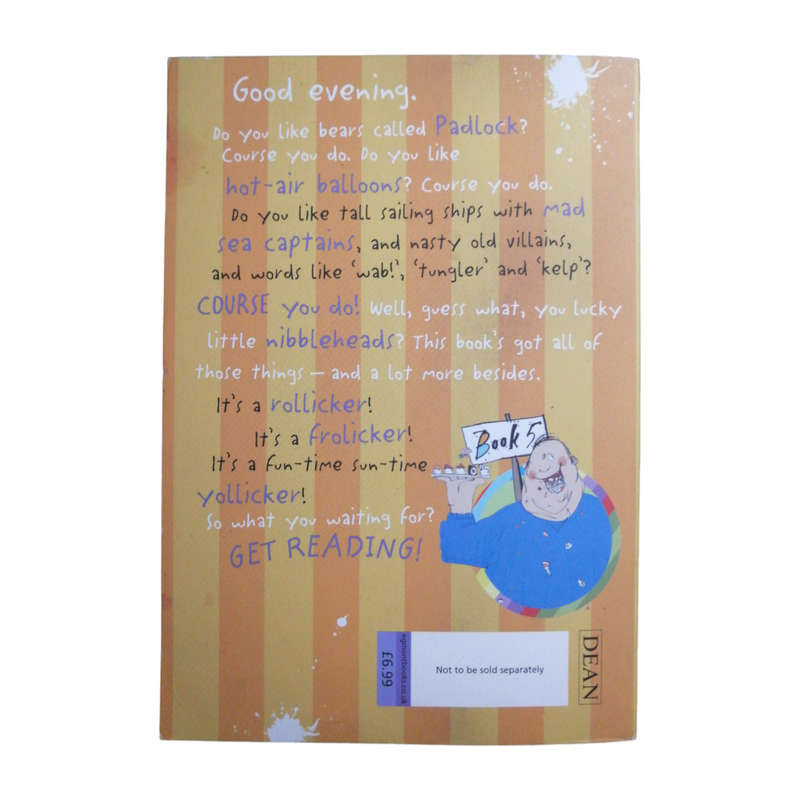 Good evening.
Do you like bears called Padlock?
Course you do. Do you like
hot-air balloons? Course you do.
Do you like tall sailing ships with mad
sea captains, and nasty old villains,
and words like ‘wab!’, ‘tungler’ and ‘kelp’?
COURSE you do! Well, guess what, you lucky
little nibbleheads? This book's got all of
those things – and a lot more besides.
It's a rollicker!
It's a frolicker!
It's a fun-time sun-time
yollicker!
So what you waiting for?
GET READING!
Book 5
egmontbooks.co.uk
£6.99
Not to be sold separately
DEAN